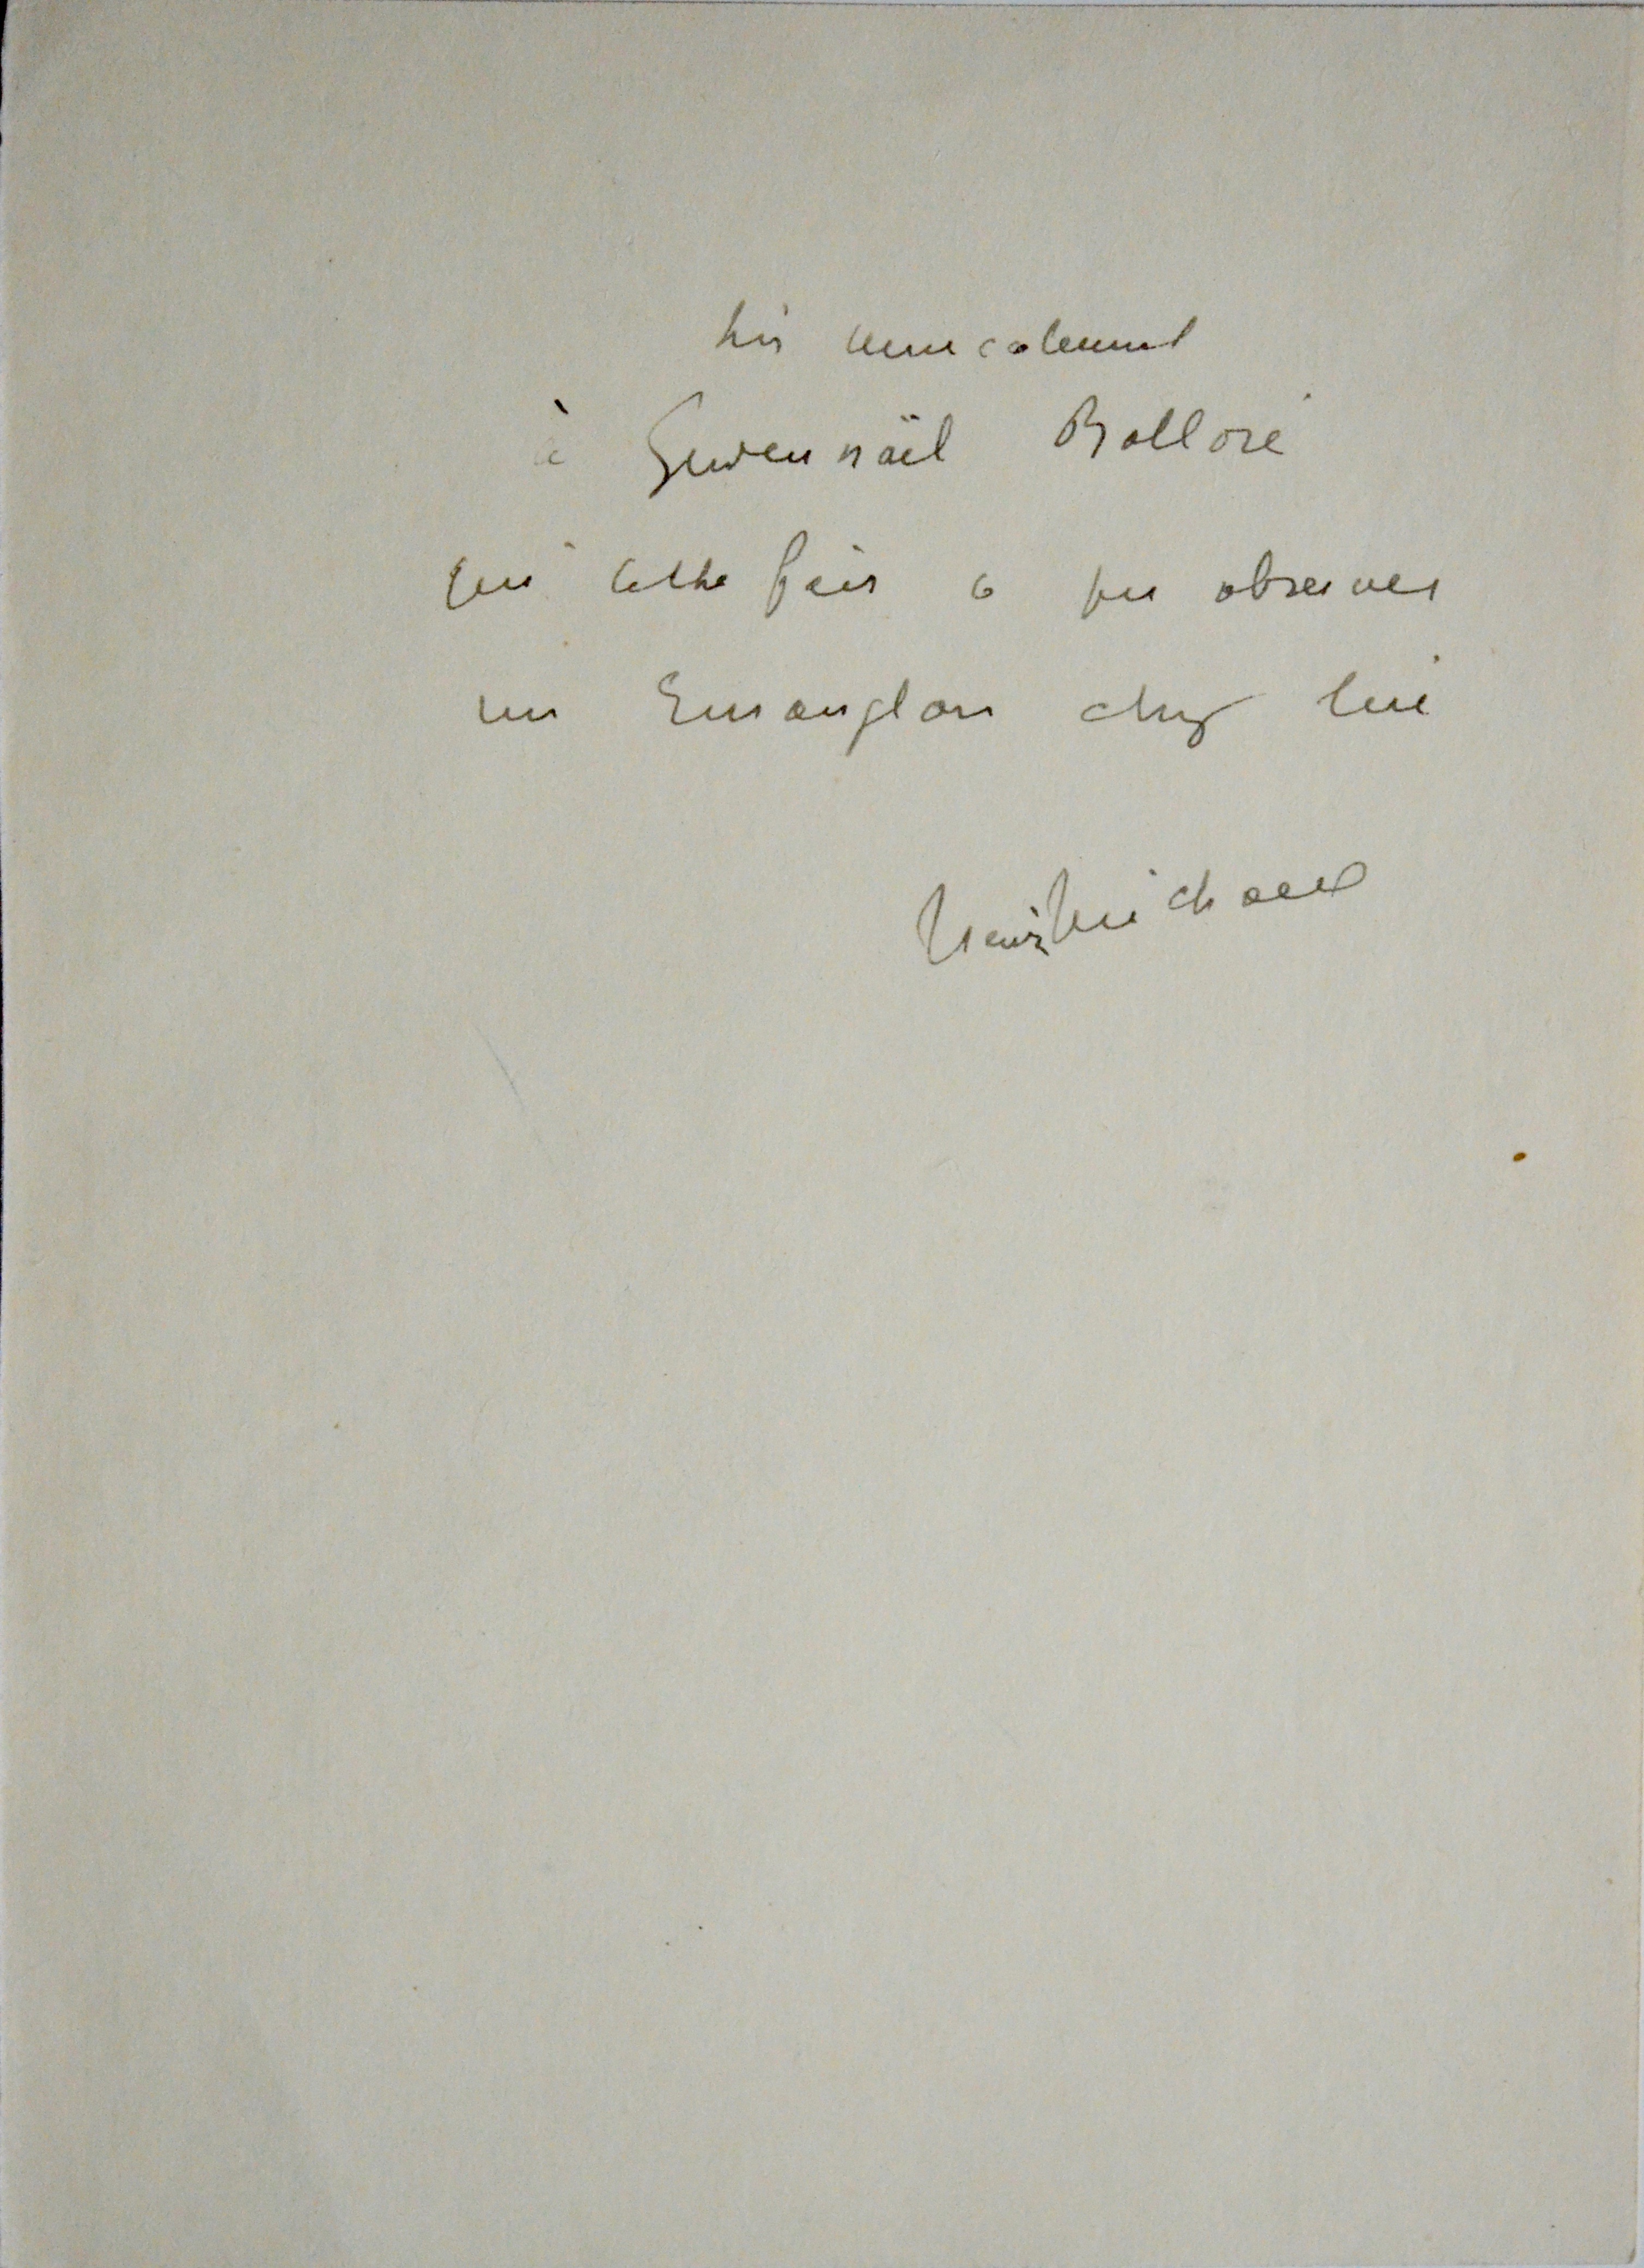 très amicalement
à Gwennaël Bolloré
qui cette fois a pu observer
un Emanglon chez lui
Henri Michaux